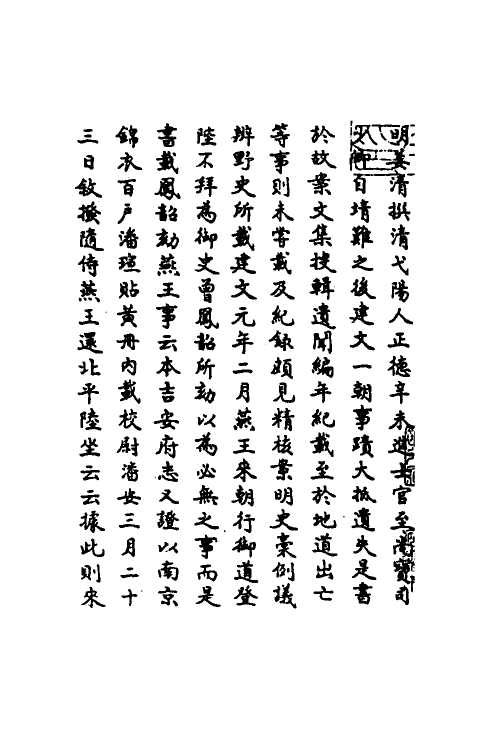 明姜清撰清弋陽人正德辛未進士官至尚寶司
少卿自靖難之後建文一朝事蹟大抵遺失是書
於故案文集搜輯遺聞編年紀載至於地道出亡
等事則未嘗載及紀錄頗見精核案明史稾例議
辨野史所載建文元年二月燕王來朝行御道登
陛不拜為御史曾鳳韶所劾以為必無之事而是
書載鳳韶劾燕王事云本吉安府志又證以南京
錦衣百戶潘瑄貼黃冊內載校尉潘安三月二十
三日敘撥隨侍燕王還北平陸坐云云據此則來